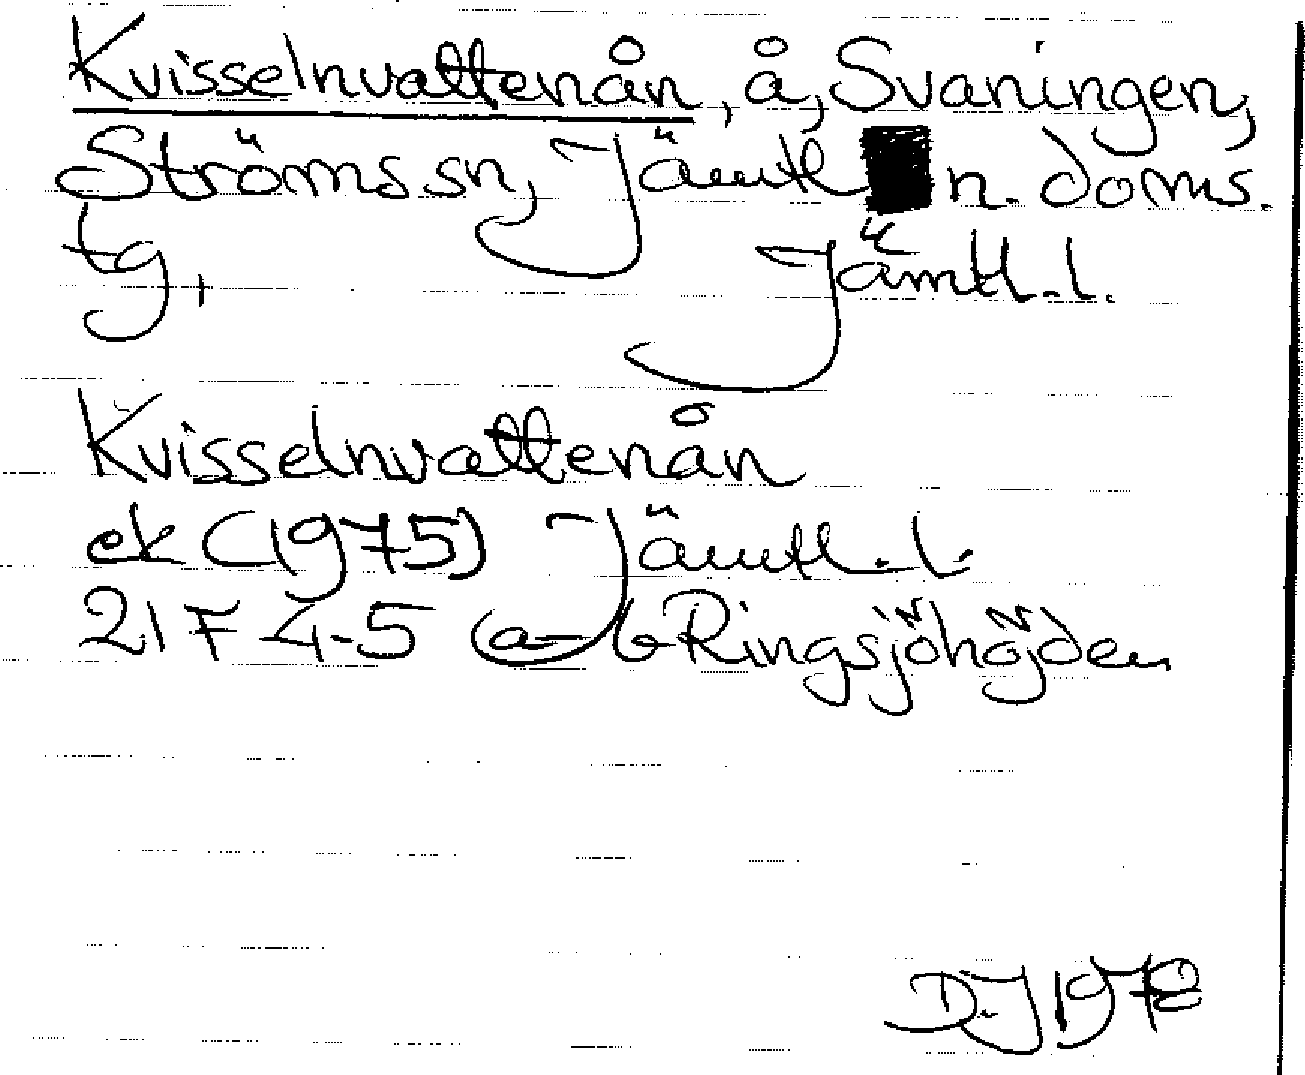 Kvisselnvattenån, å, Svaningen,
Ströms sn, Jämtl n. doms.
tg, Jämtl. l.
Kvisselnvattenån
ek (1975) Jämtl. l.
21 F 4-5 a-b Ringsjöhöjden
D.J 1978